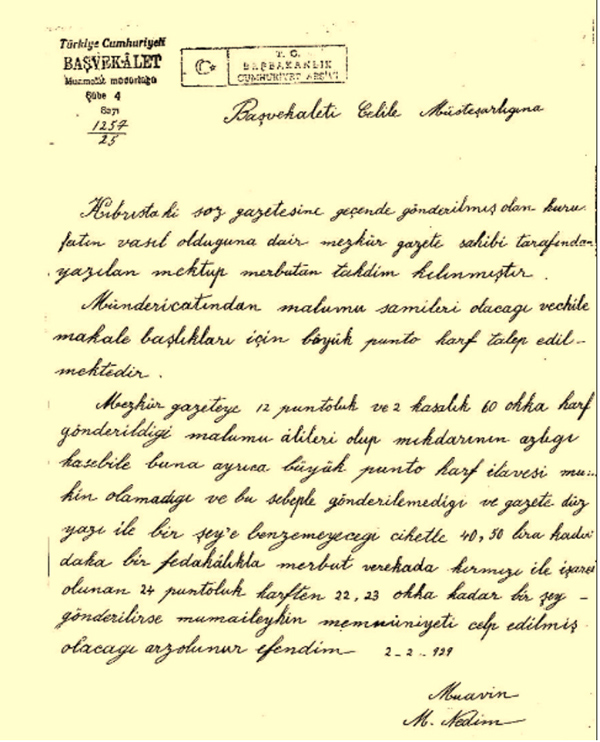 Türkiye Cumhuriyeti
BAŞVEKÂLET
Muamelât müdürlüğü
Şübe 4
Sayı
1257
25
T. C.
BAŞBAKANLIK
CUMHURİYET ARŞİVİ
Başvekaleti Celile Müsteşarlıgına
Kıbrıstaki soz gazetesine geçende gönderilmiş olan huru
fatın vasıl olduguna dair mezkür gazete sahibi tarafından
yazılan mektup merbutan takdim kılınmıştır.
Mündericatından malumu samileri olacagı vechile
makale başlıkları için büyük punto harf talep edil-
mektedir.
Mezkür gazeteye 12 puntoluk ve 2 kasalık 60 okka harf
gönderildigi malumu âlileri olup mıkdarının azlıgı
hasebile buna ayrıca büyük punto harf ilavesi müm
kin olamadıgı ve bu sebeple gönderilemedigi ve gazete düz
yazı ile bir şey'e benzemeyecegi cihetle 40,50 lira kadar
daha bir fedakâlıkla merbut verekada kırmızı ile işaret
olunan 24 puntoluk harften 22,23 okka kadar bir şey -
gönderilirse mumaileyhin memnüniyeti celp edilmiş
olacagı arzolunur efendim 2-2-929
Muavin
M. Nedim